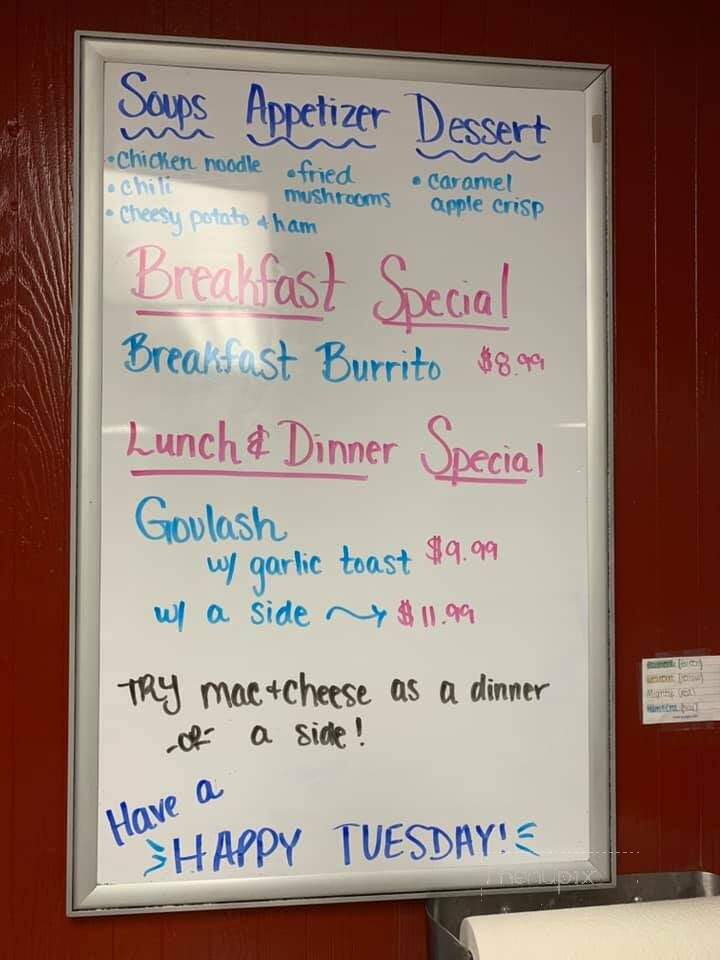 Soups Appetizer Dessert
• chicken noodle
• chili
• cheesy potato + ham
• fried
mushrooms
• caramel
apple crisp
Breakfast Special
Breakfast Burrito $8.99
Lunch & Dinner Special
Goulash
w/ garlic toast $9.99
w/ a side → $11.99
TRY mac+cheese as a dinner
-or- a side!
Have a
HAPPY TUESDAY!
menupix